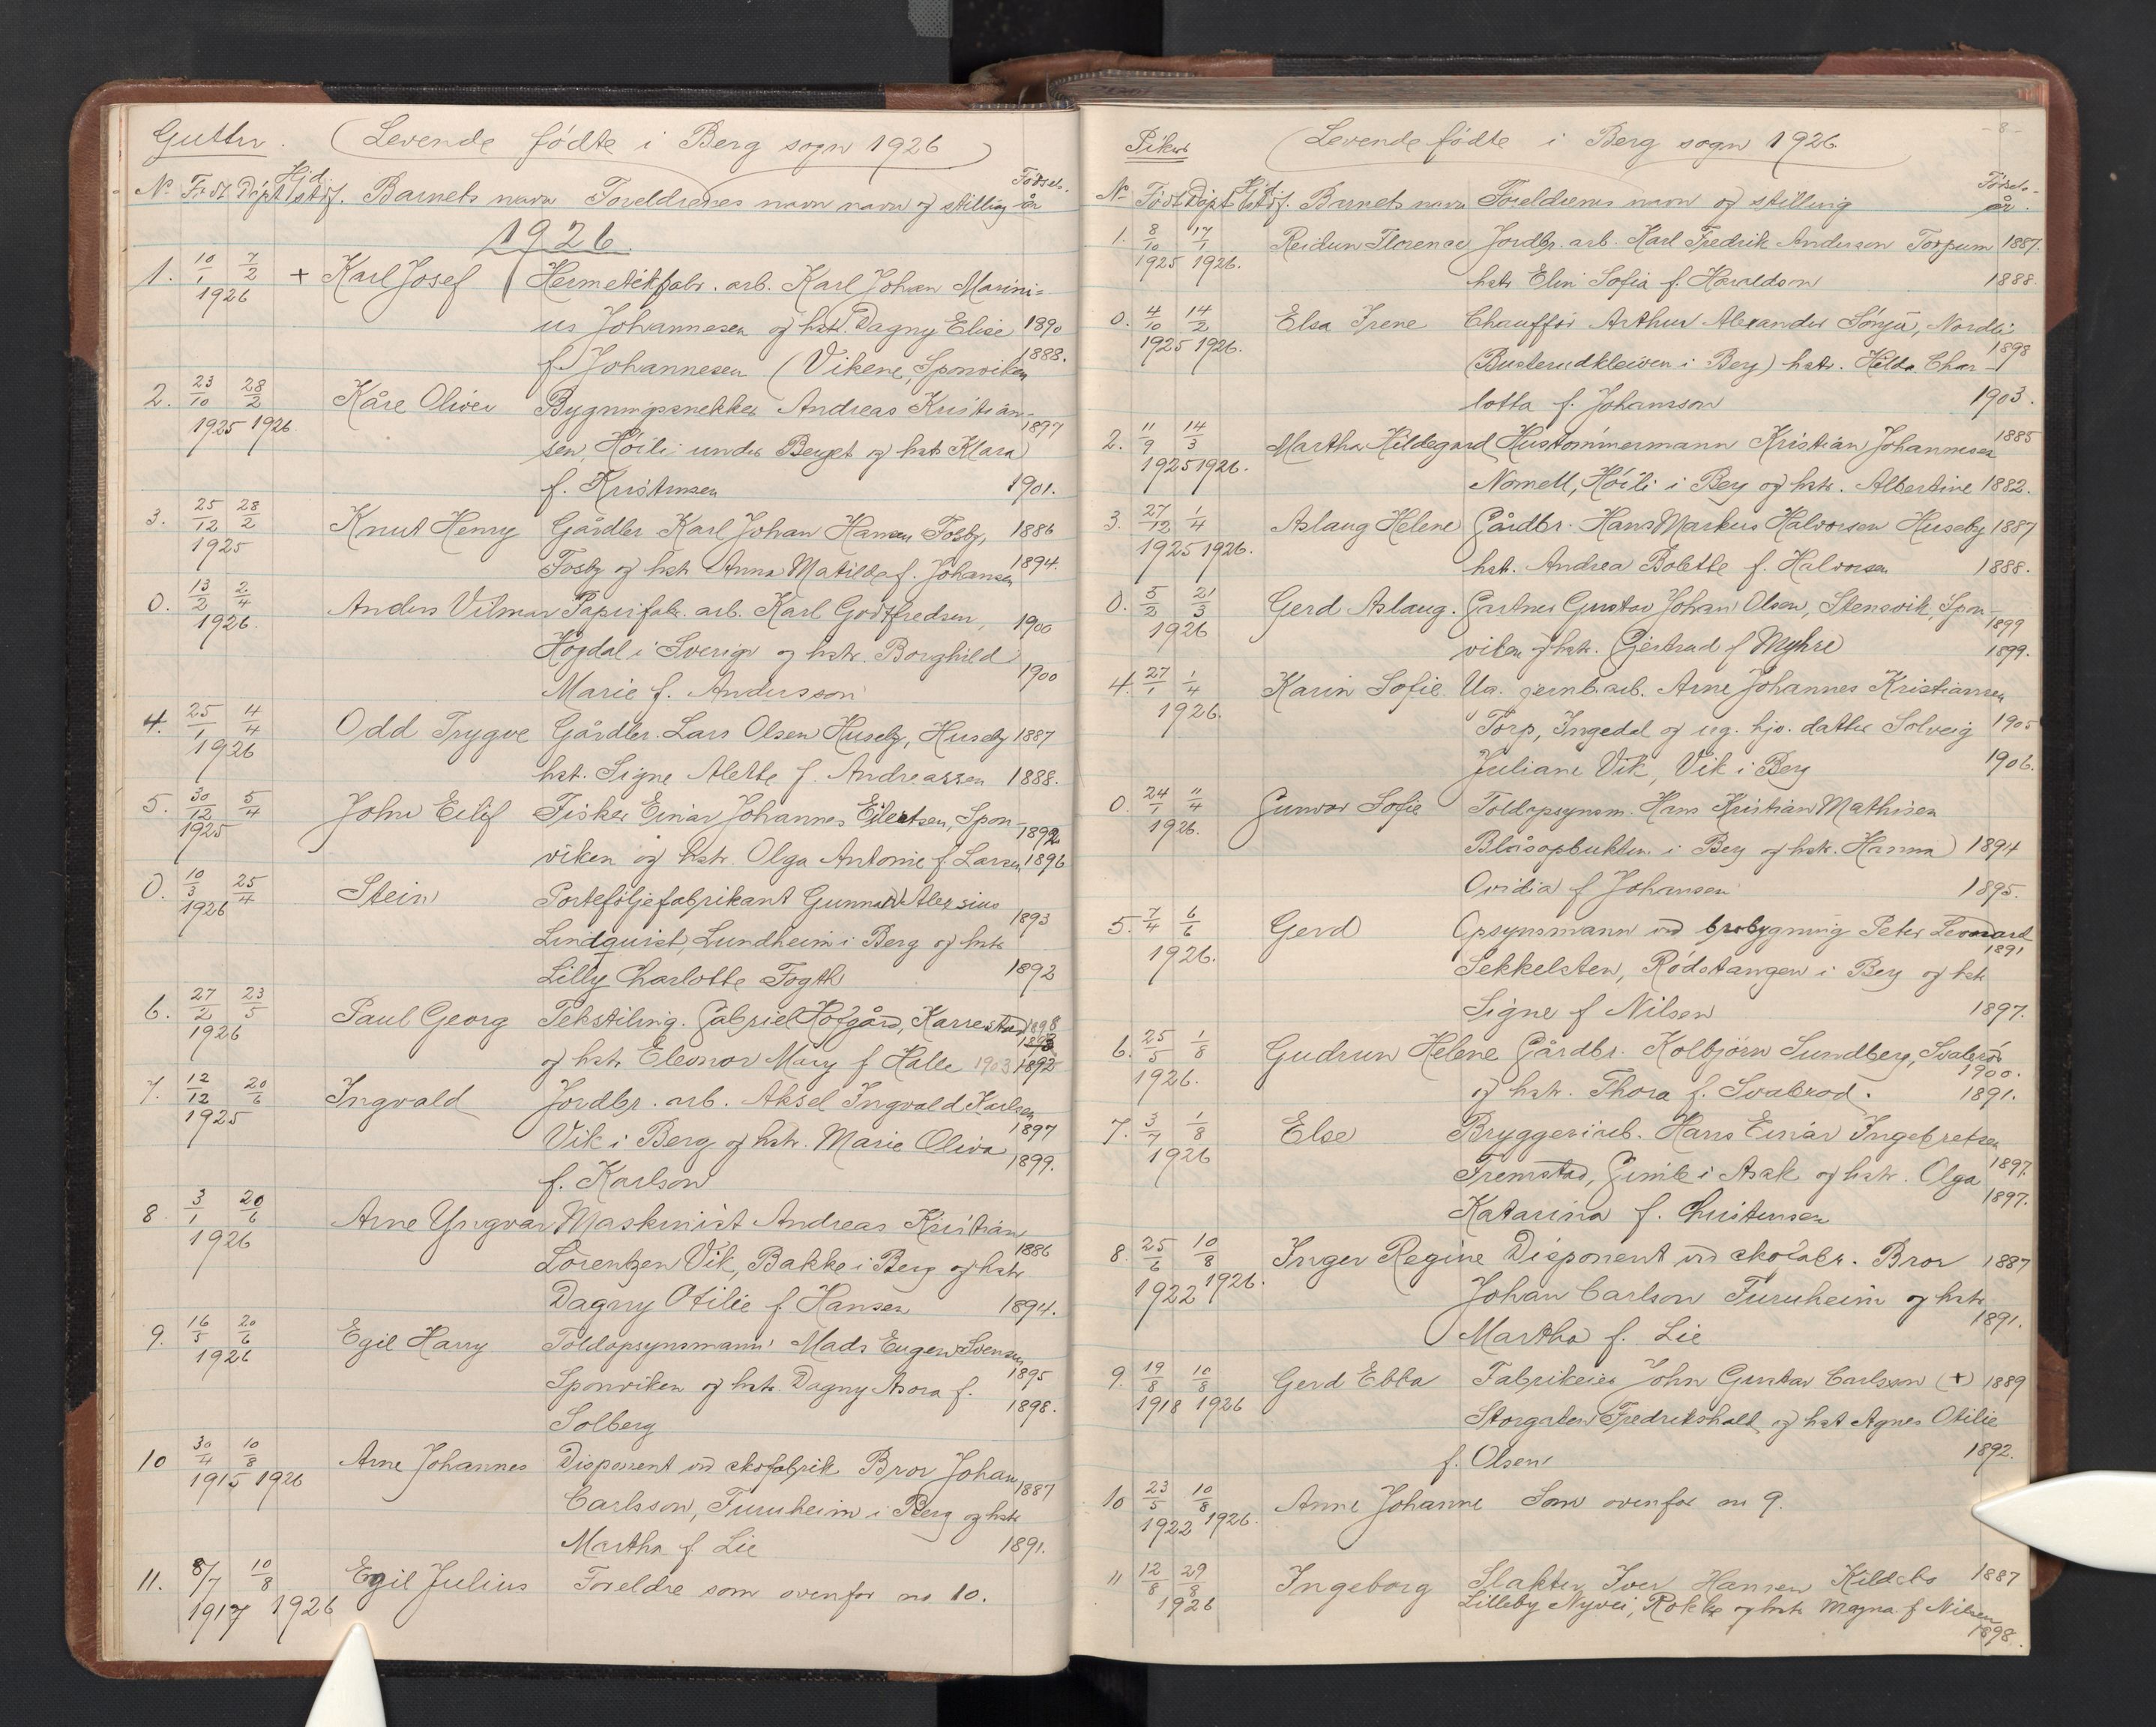 Gutter. (Levende fødte i Berg sogn 1926)
No Født Døpt Hjd. stdf. Barnets navn Foreldrenes navn navn og stilling Fødsels- år
1926.
1. 10/1 7/2 + Karl Josef Hermetikfabr. arb. Karl Johan Marini-
1926 us Johannesen og hstr. Dagny Elise 1890
f. Johannesen (Vikene, Sponviken 1888.
2. 23/10 28/2 Kåre Oliver Bygningssnekker Andreas Kristian-
1925 1926 sen, Höili under Berget og hstr Klara 1897
f. Kristensen 1901.
3. 25/12 28/2 Knut Henry Gårdbr. Karl Johan Hansen Fosby, 1886
1925 Fosby og hstr Anna Matilde f. Johansen 1894.
0. 13/2 2/4 Anders Vilmar Papirfabr. arb. Karl Godtfredsen, 1900
1926. Högdal i Sverige og hstr. Borghild
Marie f. Andersson 1900
4. 25/1 4/4 Odd Trygve Gårdbr. Lars Olsen Huseby, Huseby 1887
1926 hst. Signe Alette f. Andreassen 1888.
5. 30/12 5/4 John Eilif Fisker Einar Johannes Eilertsen, Spon-
1925 viken og hstr. Olga Antonie f. Larsen 1892 1896
0. 10/3 25/4 Stein Porteföljefabrikant Gunnar Alexsius
1926 Lindquist, Lundheim i Berg og hstr 1893
Lilly Charlotte Fogth 1892
6. 27/2 23/5 Paul Georg Tekstiling. Gabriel Hofgård, Karrestad 1898
1926 og hstr Eleonor Mary f Halle 1903 1892
7. 12/12 20/6 Ingvald Jordbr. arb. Aksel Ingvald Karlsen
1925 Vik i Berg og hstr. Marie Oliva 1897
f. Karlson 1899.
8 3/1 20/6 Arne Yngvar Maskinist Andreas Kristian
1926 Lorentzen Vik, Bakke i Berg og hstr 1886
Dagny Otilie f. Hansen 1894.
9. 16/5 20/6 Egil Harry Toldopsynsmann Mads Eugen Svensen
1926 Sponviken og hstr. Dagny Asora f. 1895
Solberg 1898.
10 30/4 10/8 Arne Johannes Disponent ved skofabrik Bror Johan
1915 1926 Carlsson, Furuheim i Berg og hstr 1887
Martha f. Lie 1891.
11. 8/7 10/8 Egil Julius Foreldre som ovenfor no 10.
1917 1926
-8-
Piker (Levende fødte i Berg sogn 1926
No Født Døpt Hjd. stdf. Barnets navn Foreldrenes navn og stilling Fødsels- år.
1. 8/10 17/1 Reidun Florence Jordbr. arb. Karl Fredrik Anderson Torpum 1887.
1925 1926. hstr Elin Sofia f. Haraldson 1888.
0. 4/10 14/2 Elsa Irene Chauffør Arthur Alexander Sönju, Nordli
1925 1926. (Busterudkleiven i Berg) hstr. Hilda Char- 1898
lotta f. Johansson 1903.
2. 11/9 14/3 Martha Hildegard Hustömmermann Kristian Johannesen 1885
1925 1926. Nomell, Höili i Berg og hstr. Albertine 1882.
3. 27/12 1/4 Aslaug Helene Gårdbr. Hans Markus Halvorsen Huseby 1887
1925 1926. hstr. Andrea Bolette f. Halvorsen 1888.
0. 5/2 21/3 Gerd Aslaug. Gartner Gustav Johan Olsen, Stensvik, Spon-
1926 viken og hstr. Gjertrud f Myhre 1899 1899.
4. 27/1 1/4 Karin Sofie Ug. jernb. arb. Arne Johannes Kristiansen
1926. Torp, Ingedal og ug. hjv. datter Solveig 1905
Juliane Vik, Vik i Berg 1906.
0. 24/1 11/4 Gunvor Sofie Toldopsynsm. Hans Kristian Mathisen
1926. Blåsopbukten i Berg og hstr. Hanna 1894
Ovidia f Johansen 1895.
5. 7/4 6/6 Gerd Opsynsmann ved brobygning Peter Leonard
1926. Sekkelsten, Rödstangen i Berg og hstr 1891
Signe f Nilsen 1897.
6. 25/5 1/8 Gudrun Helene Gårdbr. Kolbjörn Sundberg, Svaleröd
1926. og hstr. Thora f. Svalerod. 1900. 1891.
7. 3/7 1/8 Else Bryggeriarb. Hans Einar Ingebretsen
1926 Fremstad, Gimle i Asak og hstr. Olga 1897.
Katarina f. Christensen 1897.
8. 25/6 10/8 Inger Regine Disponent ved skofabr. Bror 1887
1922 1926. Johan Carlson Furuheim og hstr
Martha f. Lie 1891.
9. 19/8 10/8 Gerd Ebba Fabrikeier John Gustav Carlsson (+) 1889
1918 1926 Storgaten Fredrikshald og hst Agnes Otilie
f. Olsen 1892.
10 23/5 10/8 Anne Johanne Som ovenfor no 9.
1922 1926.
11 12/8 29/8 Ingeborg Slakter Iver Hansen Kildebo 1887
1926 Lilleby Nyvei, Rokke og hstr Magna f Nilsen
1898.